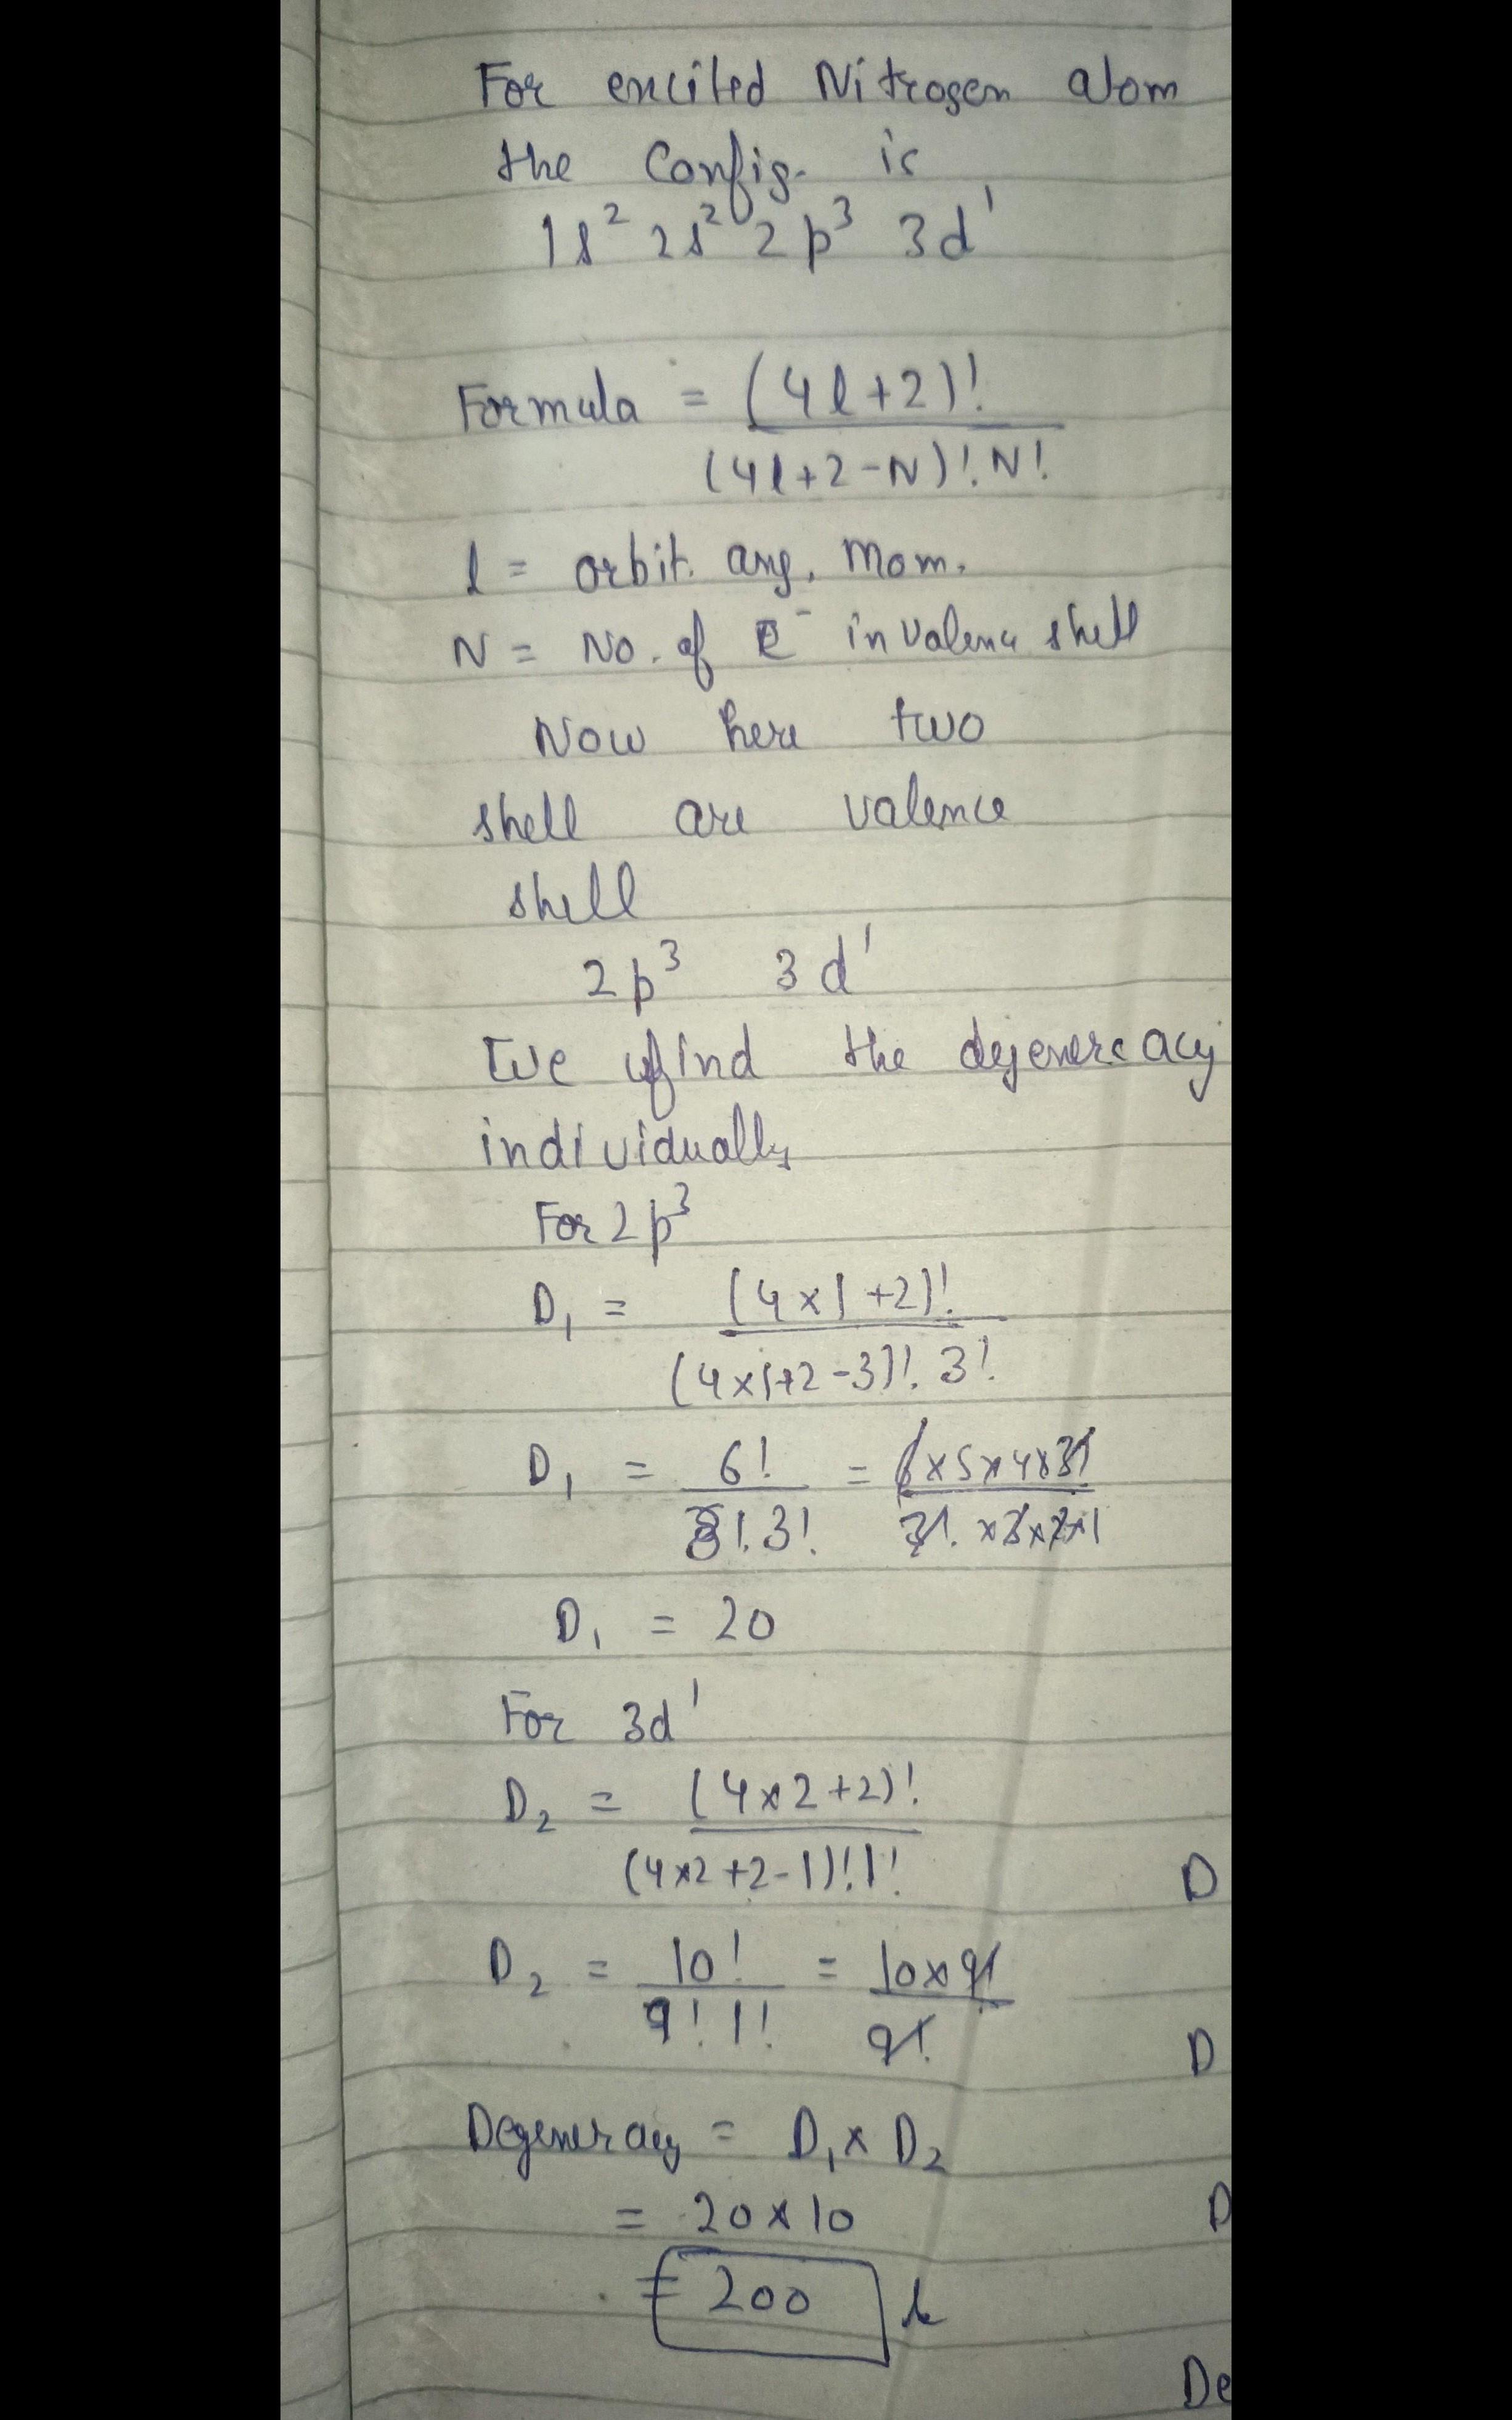 For excited Nitrogen atom
the Config. is
1s² 2s² 2p³ 3d¹
Formula = (4l+2)!
(4l+2-N)! N!
l = orbit. ang. Mom.
N = No. of e⁻ in valence shell
Now here two
shell are valence
shell
2p³ 3d¹
We find the degeneracy
individually
For 2p³
D₁ = (4×1+2)!
(4×1+2-3)! 3!
D₁ = 6! = 6×5×4×3!
3! 3! 3! ×3×2×1
D₁ = 20
For 3d¹
D₂ = (4×2+2)!
(4×2+2-1)! 1!
D
D₂ = 10! = 10×9!
9! 1! 9!
D
Degeneracy = D₁ × D₂
= 20×10
D
= 200
De